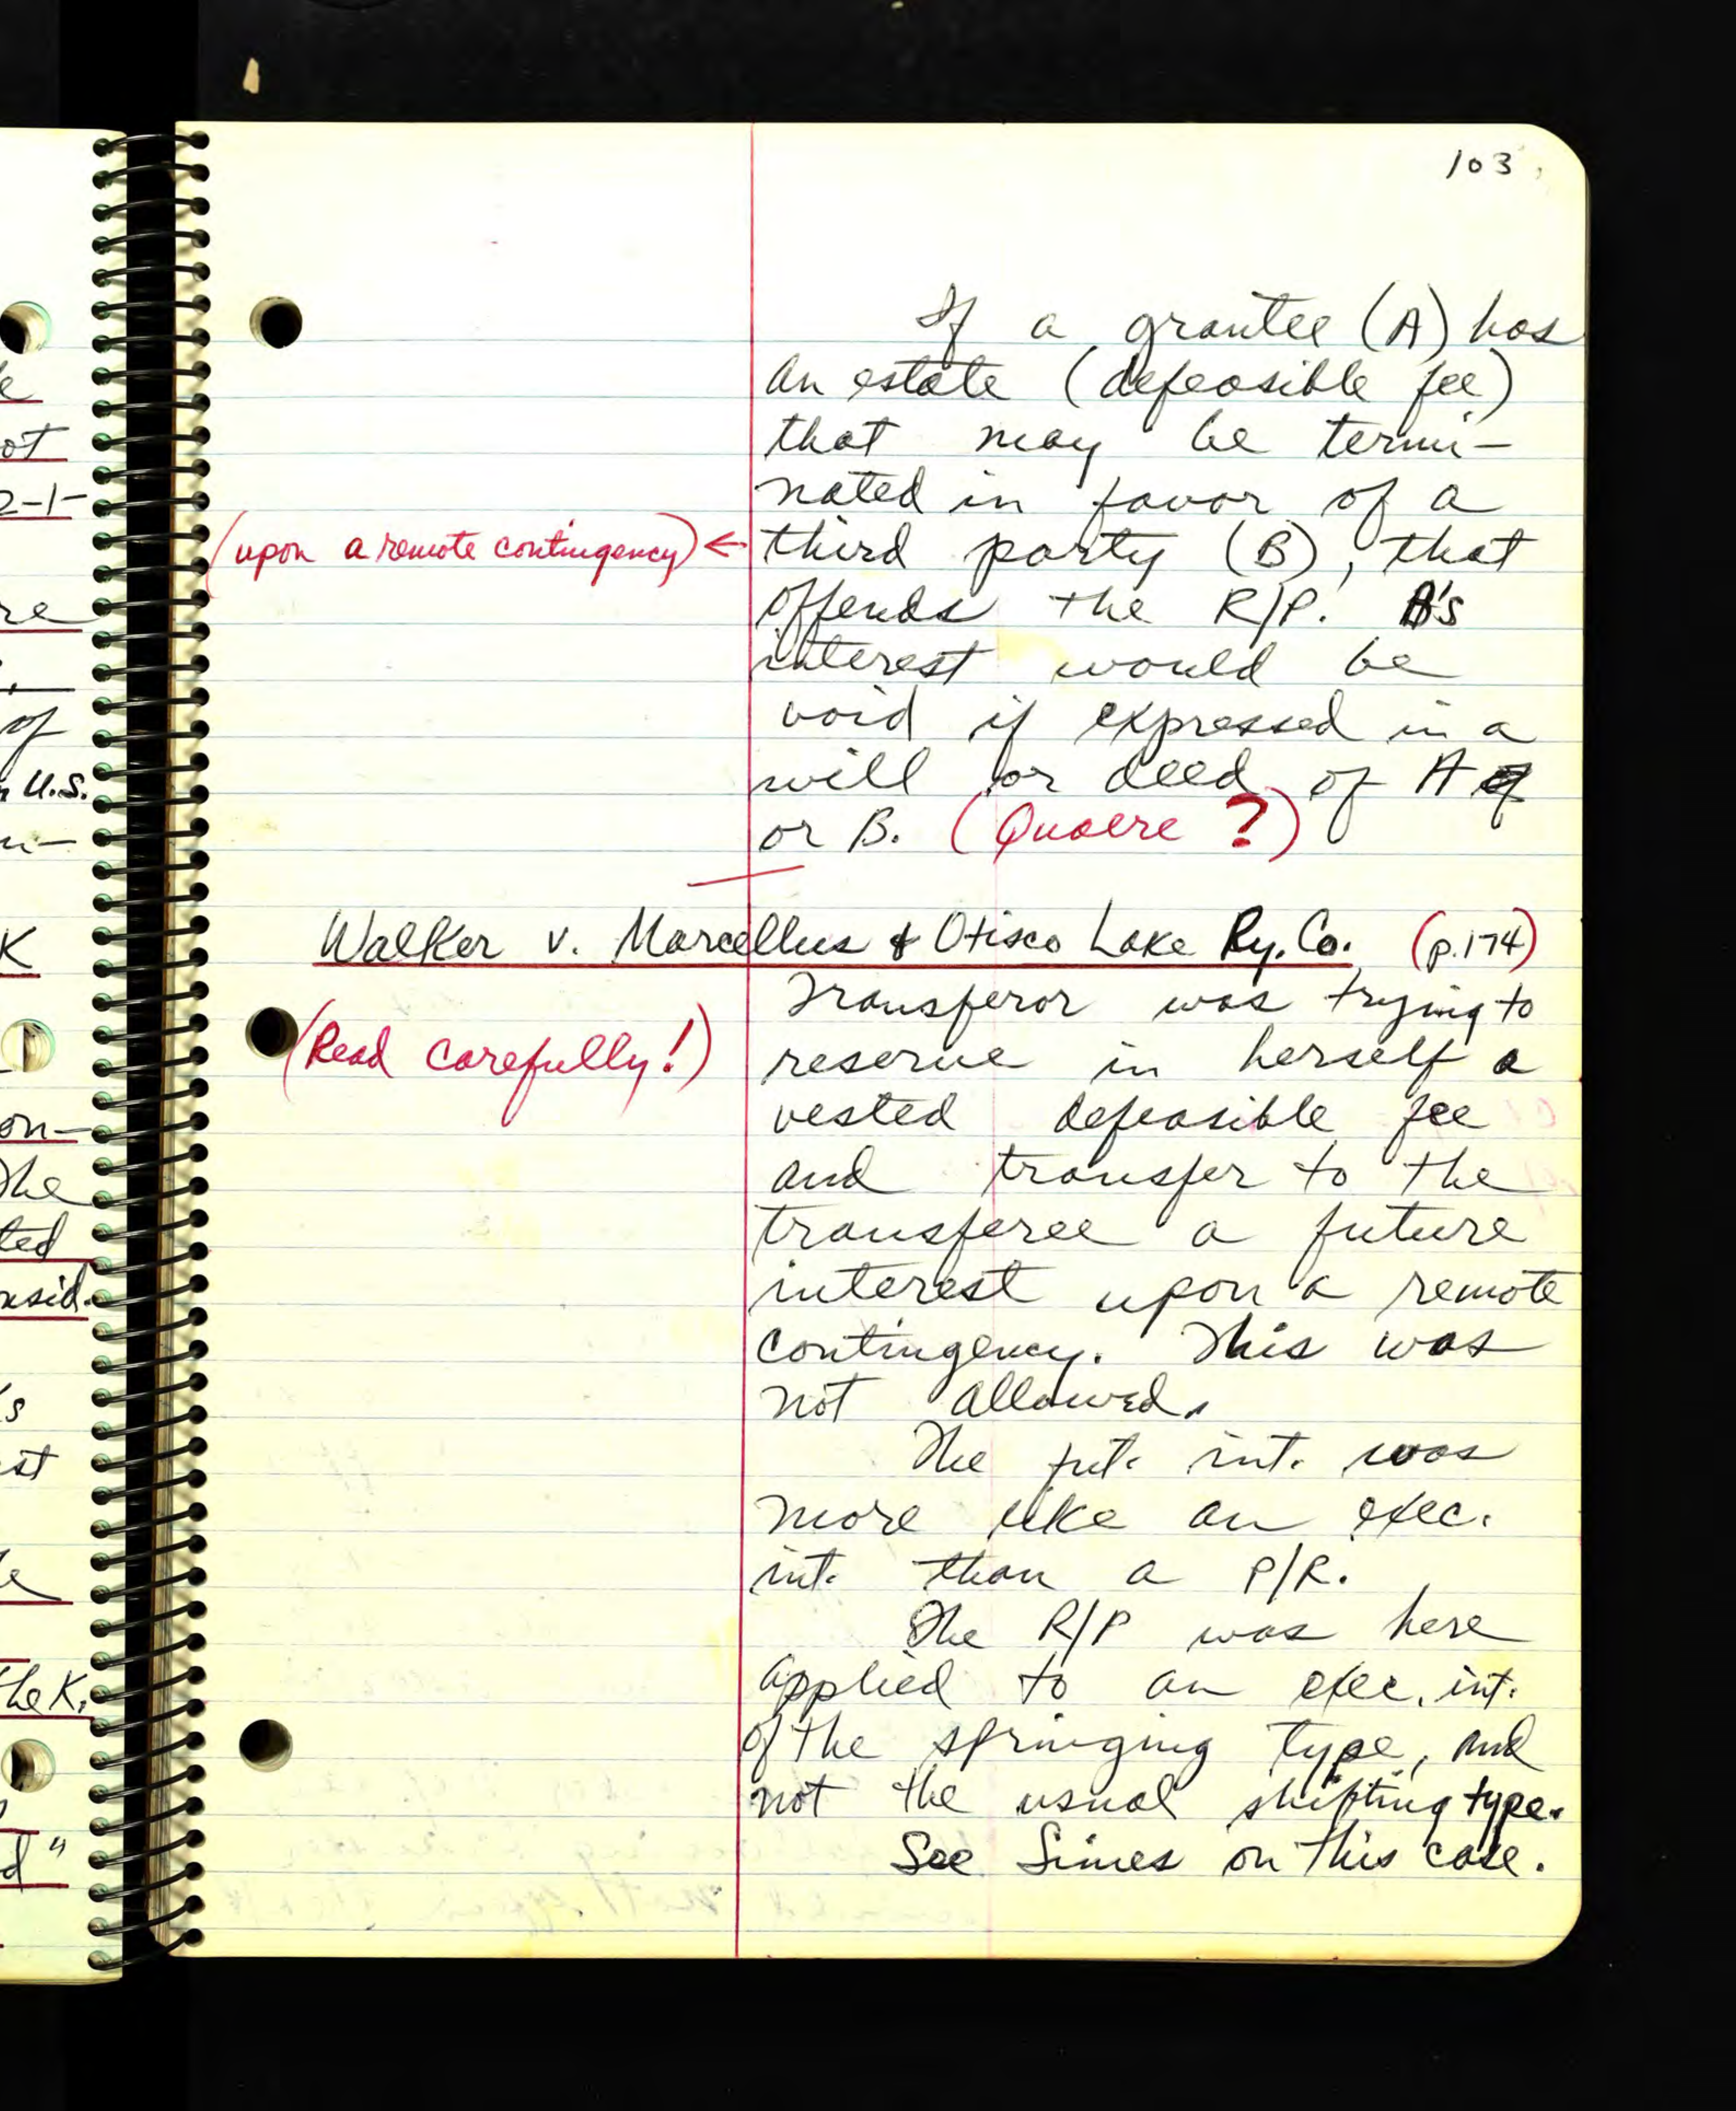 e
ot
2-1-
re
of
U.S.
K
on-
the
ted
nsid.
's
st
e
the K.
d"
103
If a grantee (A) has
an estate (defeasible fee)
that may be termi-
nated in favor of a
(upon a remote contingency) ← third party (B), that
offends the R/P. B's
interest would be
void if expressed in a
will or deed of A
or B. (Quaere ?)
Walker v. Marcellus & Otisco Lake Ry. Co. (p.174)
Transferor was trying to
(Read carefully!) reserve in herself a
vested defeasible fee
and transfer to the
transferee a future
interest upon a remote
contingency. This was
not allowed.
The fut. int. was
more like an exec.
int. than a P/R.
The R/P was here
applied to an exec. int.
of the springing type, and
not the usual shifting type.
See Simes on this case.